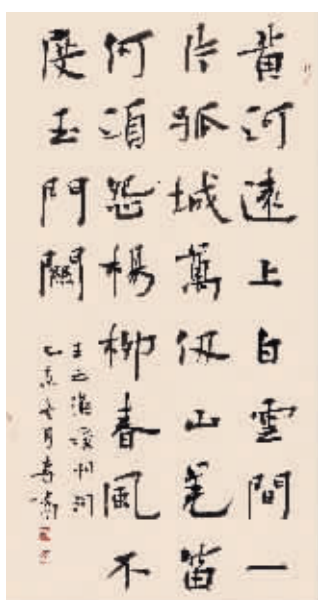 黄河遠上白雲間一
片孤城萬仞山羌笛
何須怨楊柳春風不
度玉門關
王之渙涼州詞
乙亥冬月